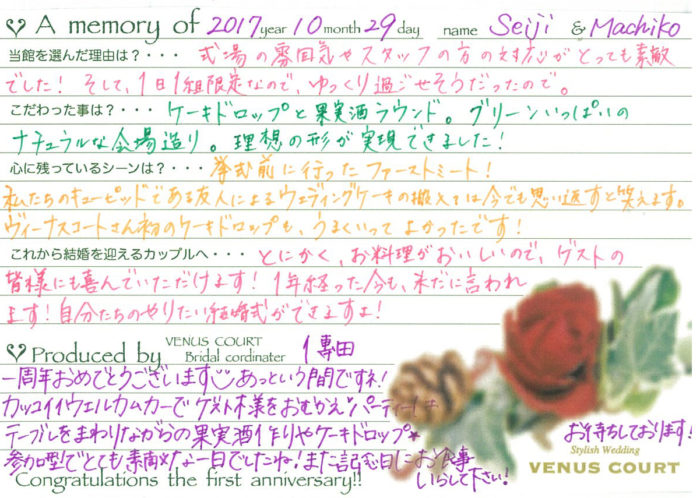 A memory of 2017 year 10 month 29 day name Seiji & Machiko
当館を選んだ理由は？・・・ 式場の雰囲気やスタッフの方の対応がとっても素敵
でした！ そして、1日1組限定なので、ゆっくり過ごせそうだったので。
こだわった事は？・・・ ケーキドロップと果実酒ラウンド。グリーンいっぱいの
ナチュラルな会場造り。理想の形が実現できました！
心に残っているシーンは？・・・ 挙式前に行ったファーストミート！
私たちのキューピッドである友人によるウェディングケーキの搬入では今でも思い返すと笑えます。
ヴィーナスコートさん初のケーキドロップも、うまくいってよかったです！
これから結婚を迎えるカップルへ・・・ とにかく、お料理がおいしいので、ゲストの
皆様にも喜んでいただけます！ 1年経った今も、未だに言われ
ます！自分たちのやりたい結婚式ができますよ！
Produced by VENUS COURT Bridal cordinater 専田
一周年おめでとうございます あっという間ですネ！
カッコイイウェルカムカーでゲスト様をおむかえ パーティーは
テーブルをまわりながらの果実酒作りやケーキドロップ★
参加型でとても素敵な一日でしたね！また記念日にお食事
いらして下さい！
お待ちしております！
Congratulations the first anniversary!!
Stylish Wedding
VENUS COURT